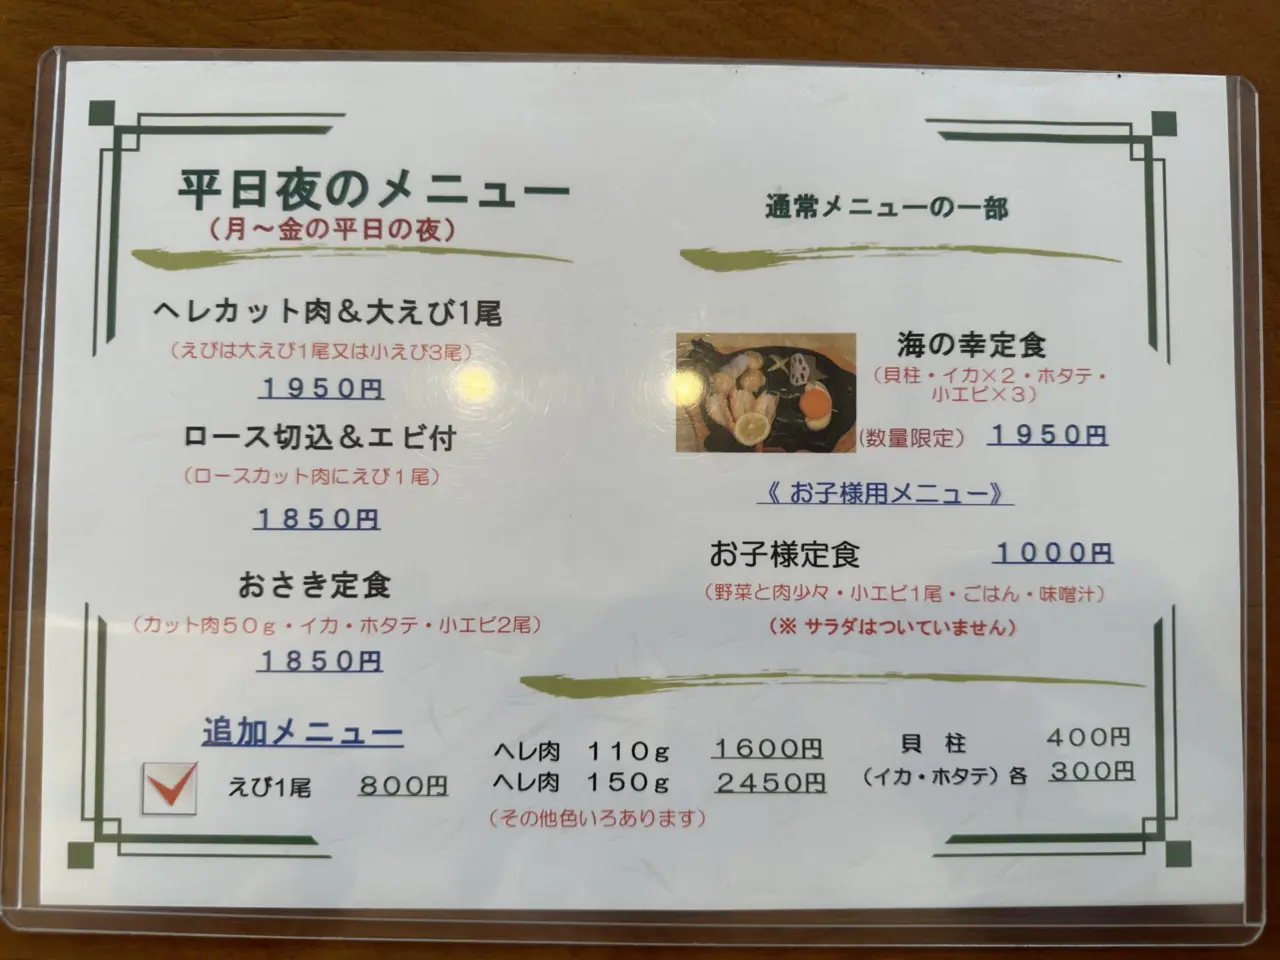 平日夜のメニュー
(月～金の平日の夜)
ヘレカット肉＆大えび1尾
(えびは大えび1尾又は小えび3尾)
1950円
ロース切込＆エビ付
(ロースカット肉にえび1尾)
1850円
おさき定食
(カット肉50g・イカ・ホタテ・小エビ2尾)
1850円
通常メニューの一部
海の幸定食
(貝柱・イカ×2・ホタテ・
小エビ×3)
(数量限定) 1950円
《お子様用メニュー》
お子様定食 1000円
(野菜と肉少々・小エビ1尾・ごはん・味噌汁)
(※ サラダはついていません)
追加メニュー
えび1尾 800円
ヘレ肉 110g 1600円
ヘレ肉 150g 2450円
(その他色いろあります)
貝 柱 400円
(イカ・ホタテ) 各 300円